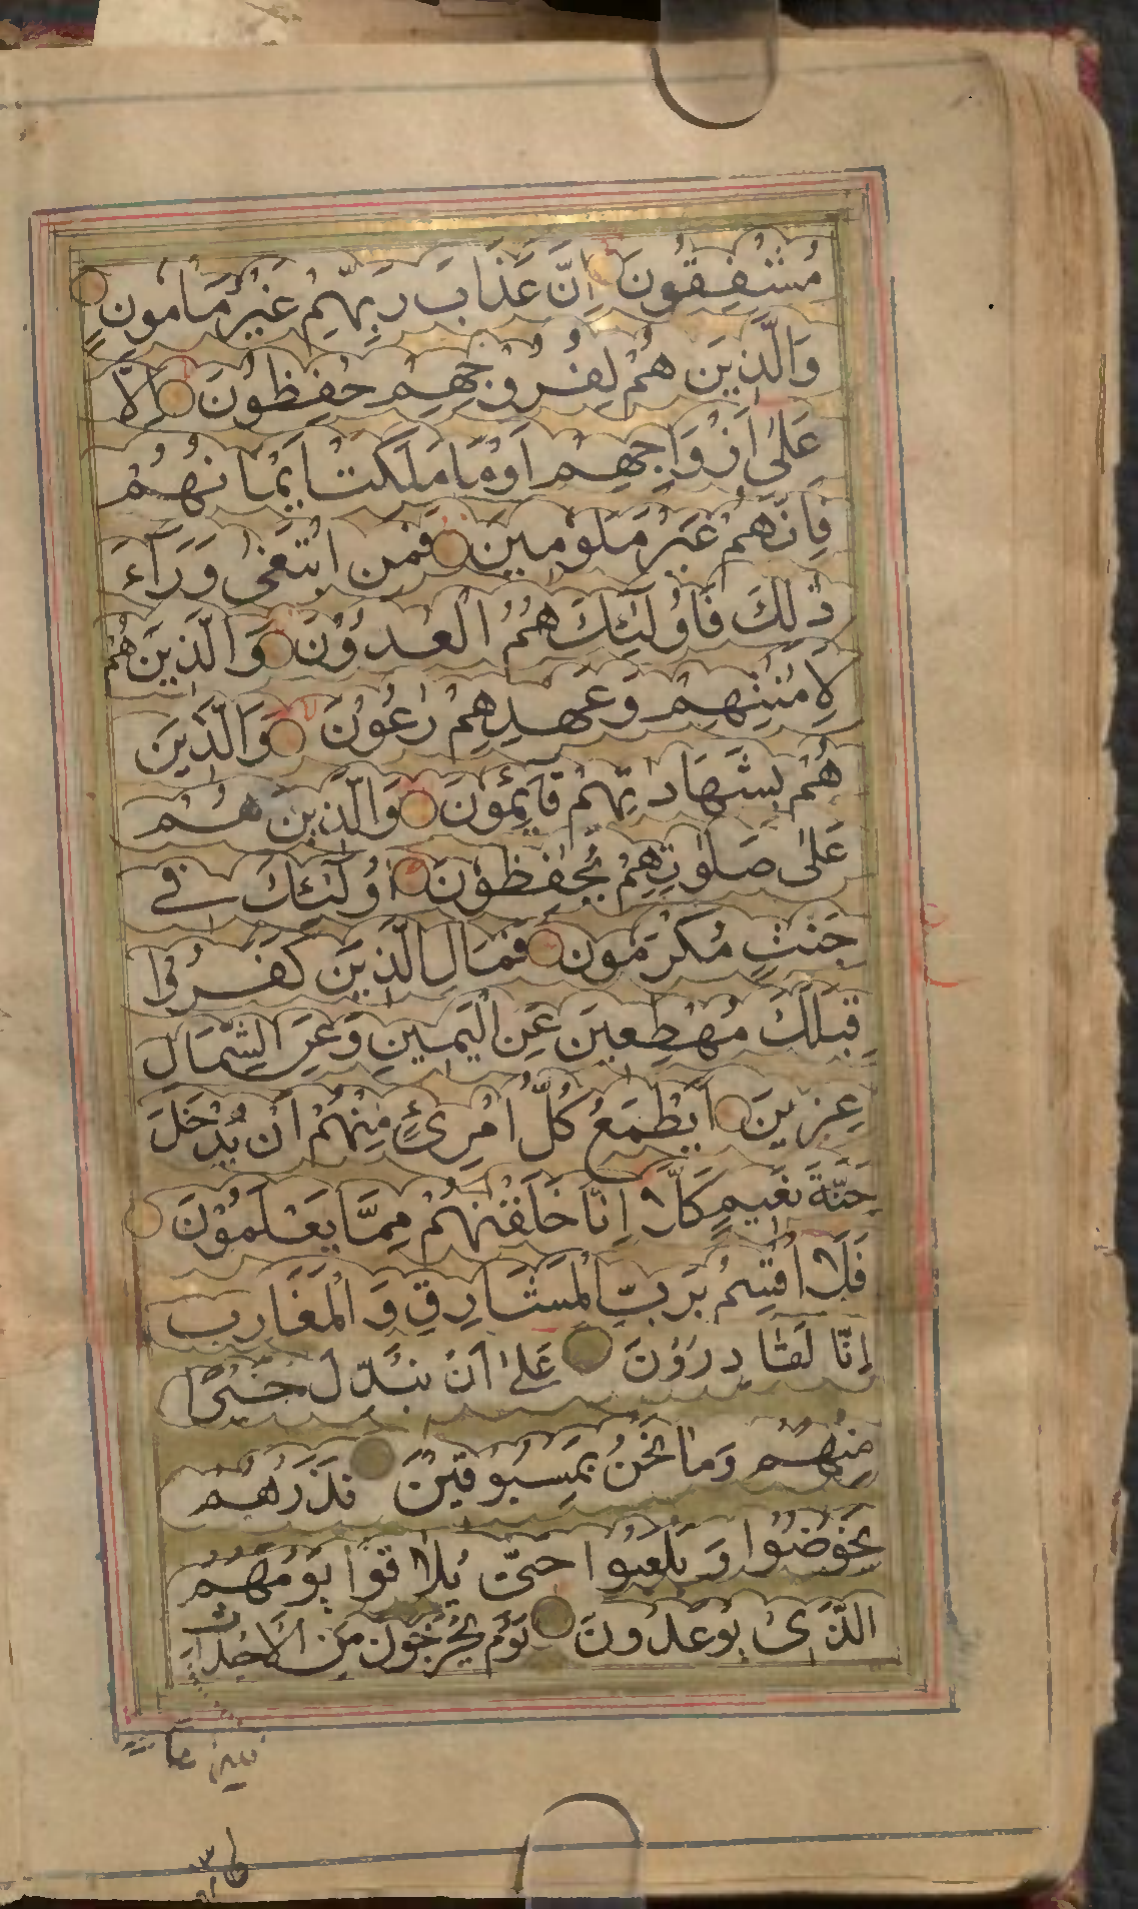 مُشْفِقُونَ اِنَّ عَذَابَ رَبِّهِمْ غَيْرُ مَأمُونٍ
وَالَّذِيَن هُمْ لِفُرُوجِهِمْ حٰفِظُونَ اِلَّا
عَلىٰ اَزْوَاجِهِمْ اَوْ مَا مَلَكَتْ اَيْمَانُهُمْ
فَاِنَّهُمْ غَيْرُ مَلُومِينَ فَمَنِ ابْتَغىٰ وَرَآءَ
ذٰلِكَ فَاُولٰئِكَ هُمُ الْعٰدُوْنَ وَالَّذِيَن هُمْ
لِاَمٰنٰتِهِمْ وَعَهْدِهِمْ رٰعُوْنَ وَالَّذِيَن
هُمْ بِشَهَادٰتِهِمْ قَآئِمُوْنَ وَالَّذِيْنَ هُمْ
عَلىٰ صَلوٰتِهِمْ يُحٰفِظُوْنَ اُولٰئِكَ فے
جَنّٰتٍ مُكْرَمُون فَمَالِ الَّذِيَن كَفَرُوا
قِبَلَكَ مُهْطِعِيَن عَنِ الْيَمِينِ وَعَنِ الشِّمَالِ
عِزِيَن اَيَطْمَعُ كُلُّ امْرِئٍ مِنْهُمْ اَنْ يُدْخَلَ
جَنَّةَ نَعِيمٍ كَلَّا اِنَّا خَلَقْنٰهُمْ مِمَّا يَعْلَمُوْنَ
فَلَا اُقْسِمُ بِرَبِّ الْمَشَارِقِ وَ الْمَغَارِب
اِنَّا لَقَادِرُوْنَ عَلىٰ اَنْ نُبَدِّلَ خَيْرًا
مِنْهُمْ وَمَا نَحْنُ بِمَسْبُوقِيْنَ فَذَرْهُمْ
يَخُوْضُوْا وَيَلْعَبُوا حَتّىٰ يُلَاقُوْا يَوْمَهُمُ
الَّذِىْ يُوْعَدُونَ يَوْمَ يَخْرُجُوْنَ مِنَ الْاَجْدَاثِ